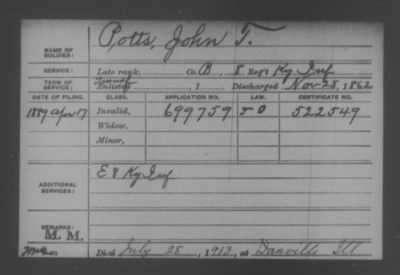 Potts, John T.
NAME OF SOLDIER:
SERVICE: Late rank, Co. B, 8 Reg't Ky Inf
TERM OF SERVICE: Enlisted , 1 Discharged Nov 28, 1862
DATE OF FILING. CLASS. APPLICATION NO. LAW. CERTIFICATE NO.
1889 Apr 17 Invalid, 699759 50 522549
Widow,
Minor,
ADDITIONAL SERVICES: E 8 Ky Inf
REMARKS: M. M.
Died July 28, 1913, at Danville Ill.